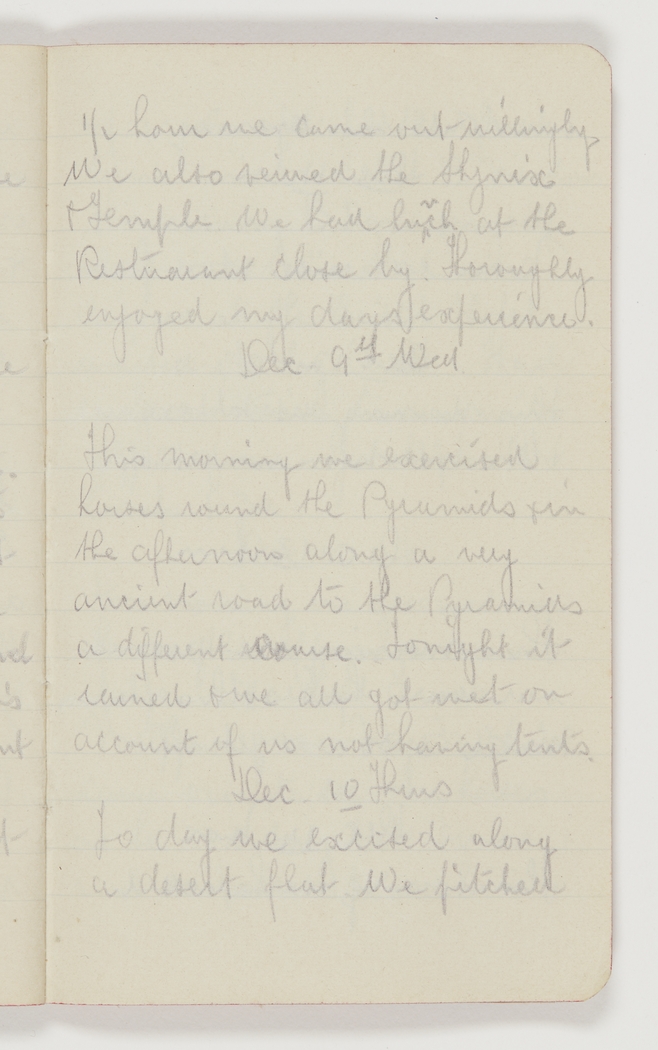 1/2 hour we came out willingly
We also veiwed the Shpnix
& Temple We had lunch at the
Restuarant close by. Thoroughly
enjoyed my days experience.
Dec. 9th Wed
This morning we exercised
horses round the Pyramids & in
the afternoon along a very
ancient road to the Pyramids
a different course. Tonight it
rained & we all got wet on
account of us not having tents.
Dec. 10 Thurs
To day we excised along
a desert flat. We pitched